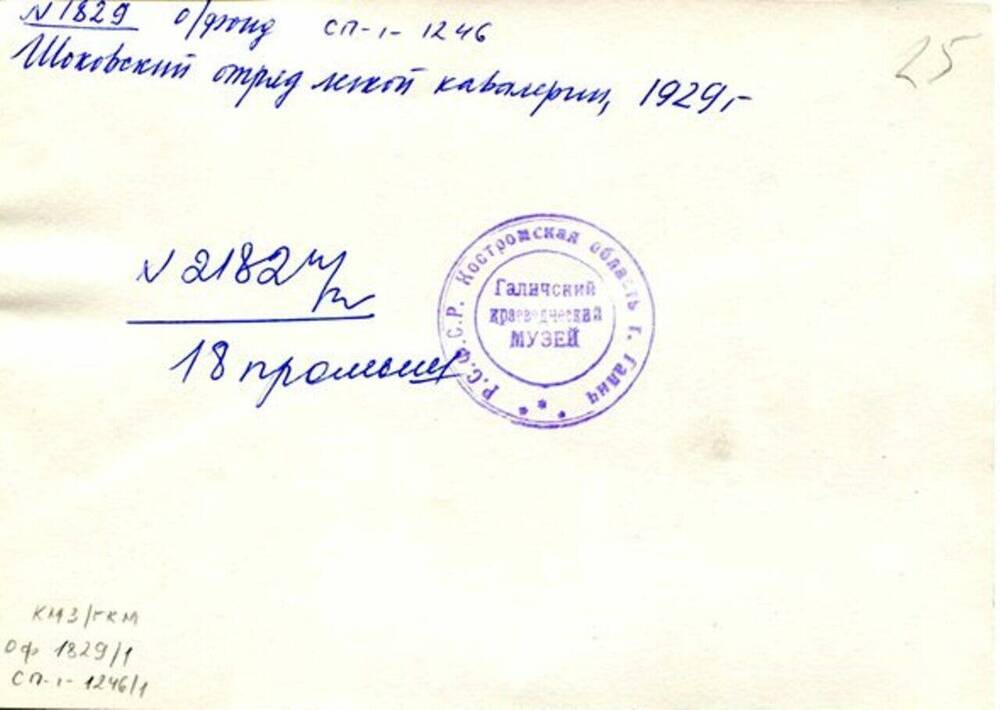 N 1829 о/фонд СП-I-1246
25
Шокшский отряд легкой кавалерии, 1929 г.
N 2182 н/
18 промыш
Р.С.Ф.С.Р. Костромская область г. Галич
Галичский
краеведческий
МУЗЕЙ
КМЗ/ГКМ
ОФ 1829/1
СП-I-1246/1